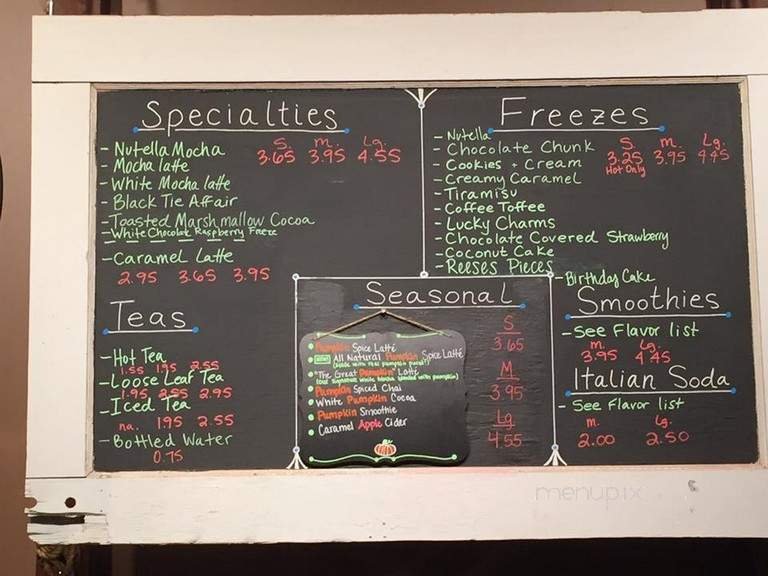 Specialties
S. m. Lg.
- Nutella Mocha 3.65 3.95 4.55
- Mocha latte
- White Mocha latte
- Black Tie Affair
- Toasted Marshmallow Cocoa
- White Chocolate Raspberry Freeze
- Caramel Latte
2.95 3.65 3.95
Teas
- Hot Tea
1.55 1.95 2.55
- Loose Leaf Tea
1.95 2.55 2.95
- Iced Tea
na. 1.95 2.55
- Bottled Water
0.75
Freezes
- Nutella
S. m. Lg.
- Chocolate Chunk 3.25 3.95 4.45
- Cookies + Cream Hot Only
- Creamy Caramel
- Tiramisu
- Coffee Toffee
- Lucky Charms
- Chocolate Covered Strawberry
- Coconut Cake
- Reeses Pieces
- Birthday Cake
Seasonal
Pumpkin Spice Latté
NEW! All Natural Pumpkin Spice Latté
(made with real pumpkin puree!)
"The Great Pumpkin" Latté
(our signature white mocha blended with pumpkin)
Pumpkin Spiced Chai
White Pumpkin Cocoa
Pumpkin Smoothie
Caramel Apple Cider
S
3.65
M
3.95
Lg
4.55
Smoothies
- See Flavor list
m. Lg.
3.95 4.45
Italian Soda
- See Flavor list
m. Lg.
2.00 2.50
menupix